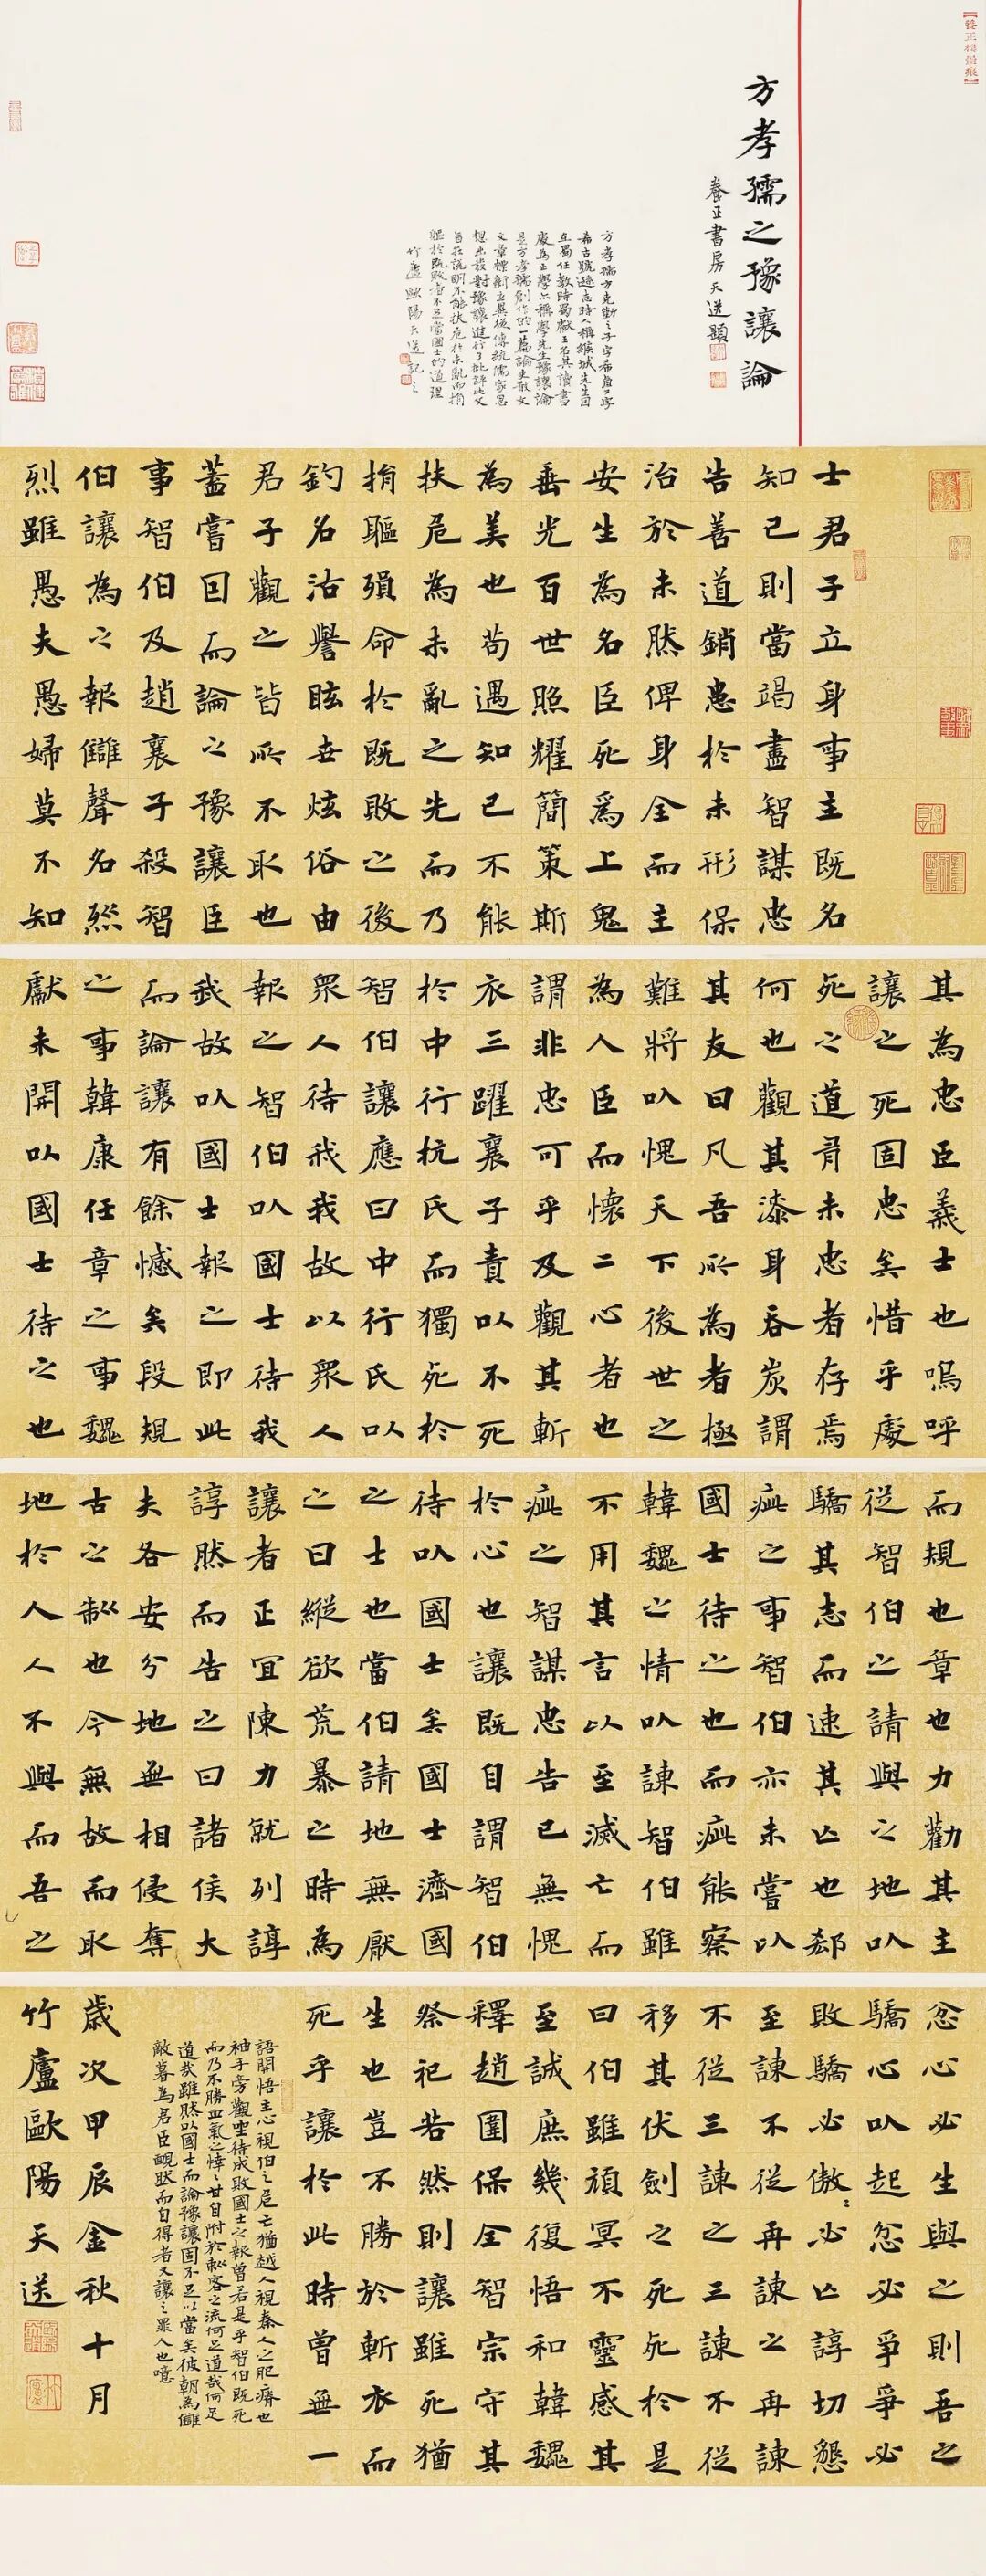 方孝孺之豫讓論
養正書房天送題
方孝孺方克勤之子字希直又字
希古號遜志時人稱緱城先生因
在蜀任教時蜀獻王名其讀書
處為正學亦稱學先生豫讓論
是方孝孺創作的一篇論史散文
文章標新立異從傳統儒家思
想出發對豫讓進行了批評此文
旨在說明不能扶危於未亂而捐
軀於既敗者不足當國士的道理
竹廬歐陽天送記之
士君子立身事主既名
知己則當竭盡智謀忠
告善道銷患於未形保
治於未然俾身全而主
安生為名臣死為上鬼
垂光百世照耀簡策斯
為美也苟遇知己不能
扶危為未亂之先而乃
捐軀殞命於既敗之後
釣名沽譽眩世炫俗由
君子觀之皆所不取也
蓋嘗因而論之豫讓臣
事智伯及趙襄子殺智
伯讓為之報讎聲名烈
烈雖愚夫愚婦莫不知
其為忠臣義士也嗚呼
讓之死固忠矣惜乎處
死之道有未忠者存焉
何也觀其漆身吞炭謂
其友曰凡吾所為者極
難將以愧天下後世之
為人臣而懷二心者也
謂非忠可乎及觀其斬
衣三躍襄子責以不死
於中行杭氏而獨死於
智伯讓應曰中行氏以
眾人待我我故以眾人
報之智伯以國士待我
我故以國士報之即此
而論讓有餘憾矣段規
之事韓康任章之事魏
獻未開以國士待之也
而規也章也力勸其主
從智伯之請與之地以
驕其志而速其亡也郄
疵之事智伯亦未嘗以
國士待之也而疵能察
韓魏之情以諫智伯雖
不用其言以至滅亡而
疵之智謀忠告已無愧
於心也讓既自謂智伯
待以國士矣國士濟國
之士也當伯請地無厭
之日縱欲荒暴之時為
讓者正宜陳力就列諄
諄然而告之曰諸侯大
夫各安分地無相侵奪
古之制也今無故而取
地於人人不與而吾之
忿心必生與之則吾之
驕心以起忿必爭爭必
敗驕必傲傲必亡諄切懇
至諫不從再諫之再諫
不從三諫之三諫不從
移其伏劍之死死於是
日伯雖頑冥不靈感其
至誠庶幾復悟和韓魏
釋趙圍保全智宗守其
祭祀若然則讓雖死猶
生也豈不勝於斬衣而
死乎讓於此時曾無一
語開悟主心視伯之危亡猶越人視秦人之肥瘠也
袖手旁觀坐待成敗國士之報曾若是乎智伯既死
而乃不勝血氣之悻悻甘自附於刺客之流何足道哉何足
道哉雖然以國士而論豫讓固不足以當矣彼朝為讎
敵暮為君臣靦然而自得者又讓之罪人也噫
歲次甲辰金秋十月
竹廬歐陽天送